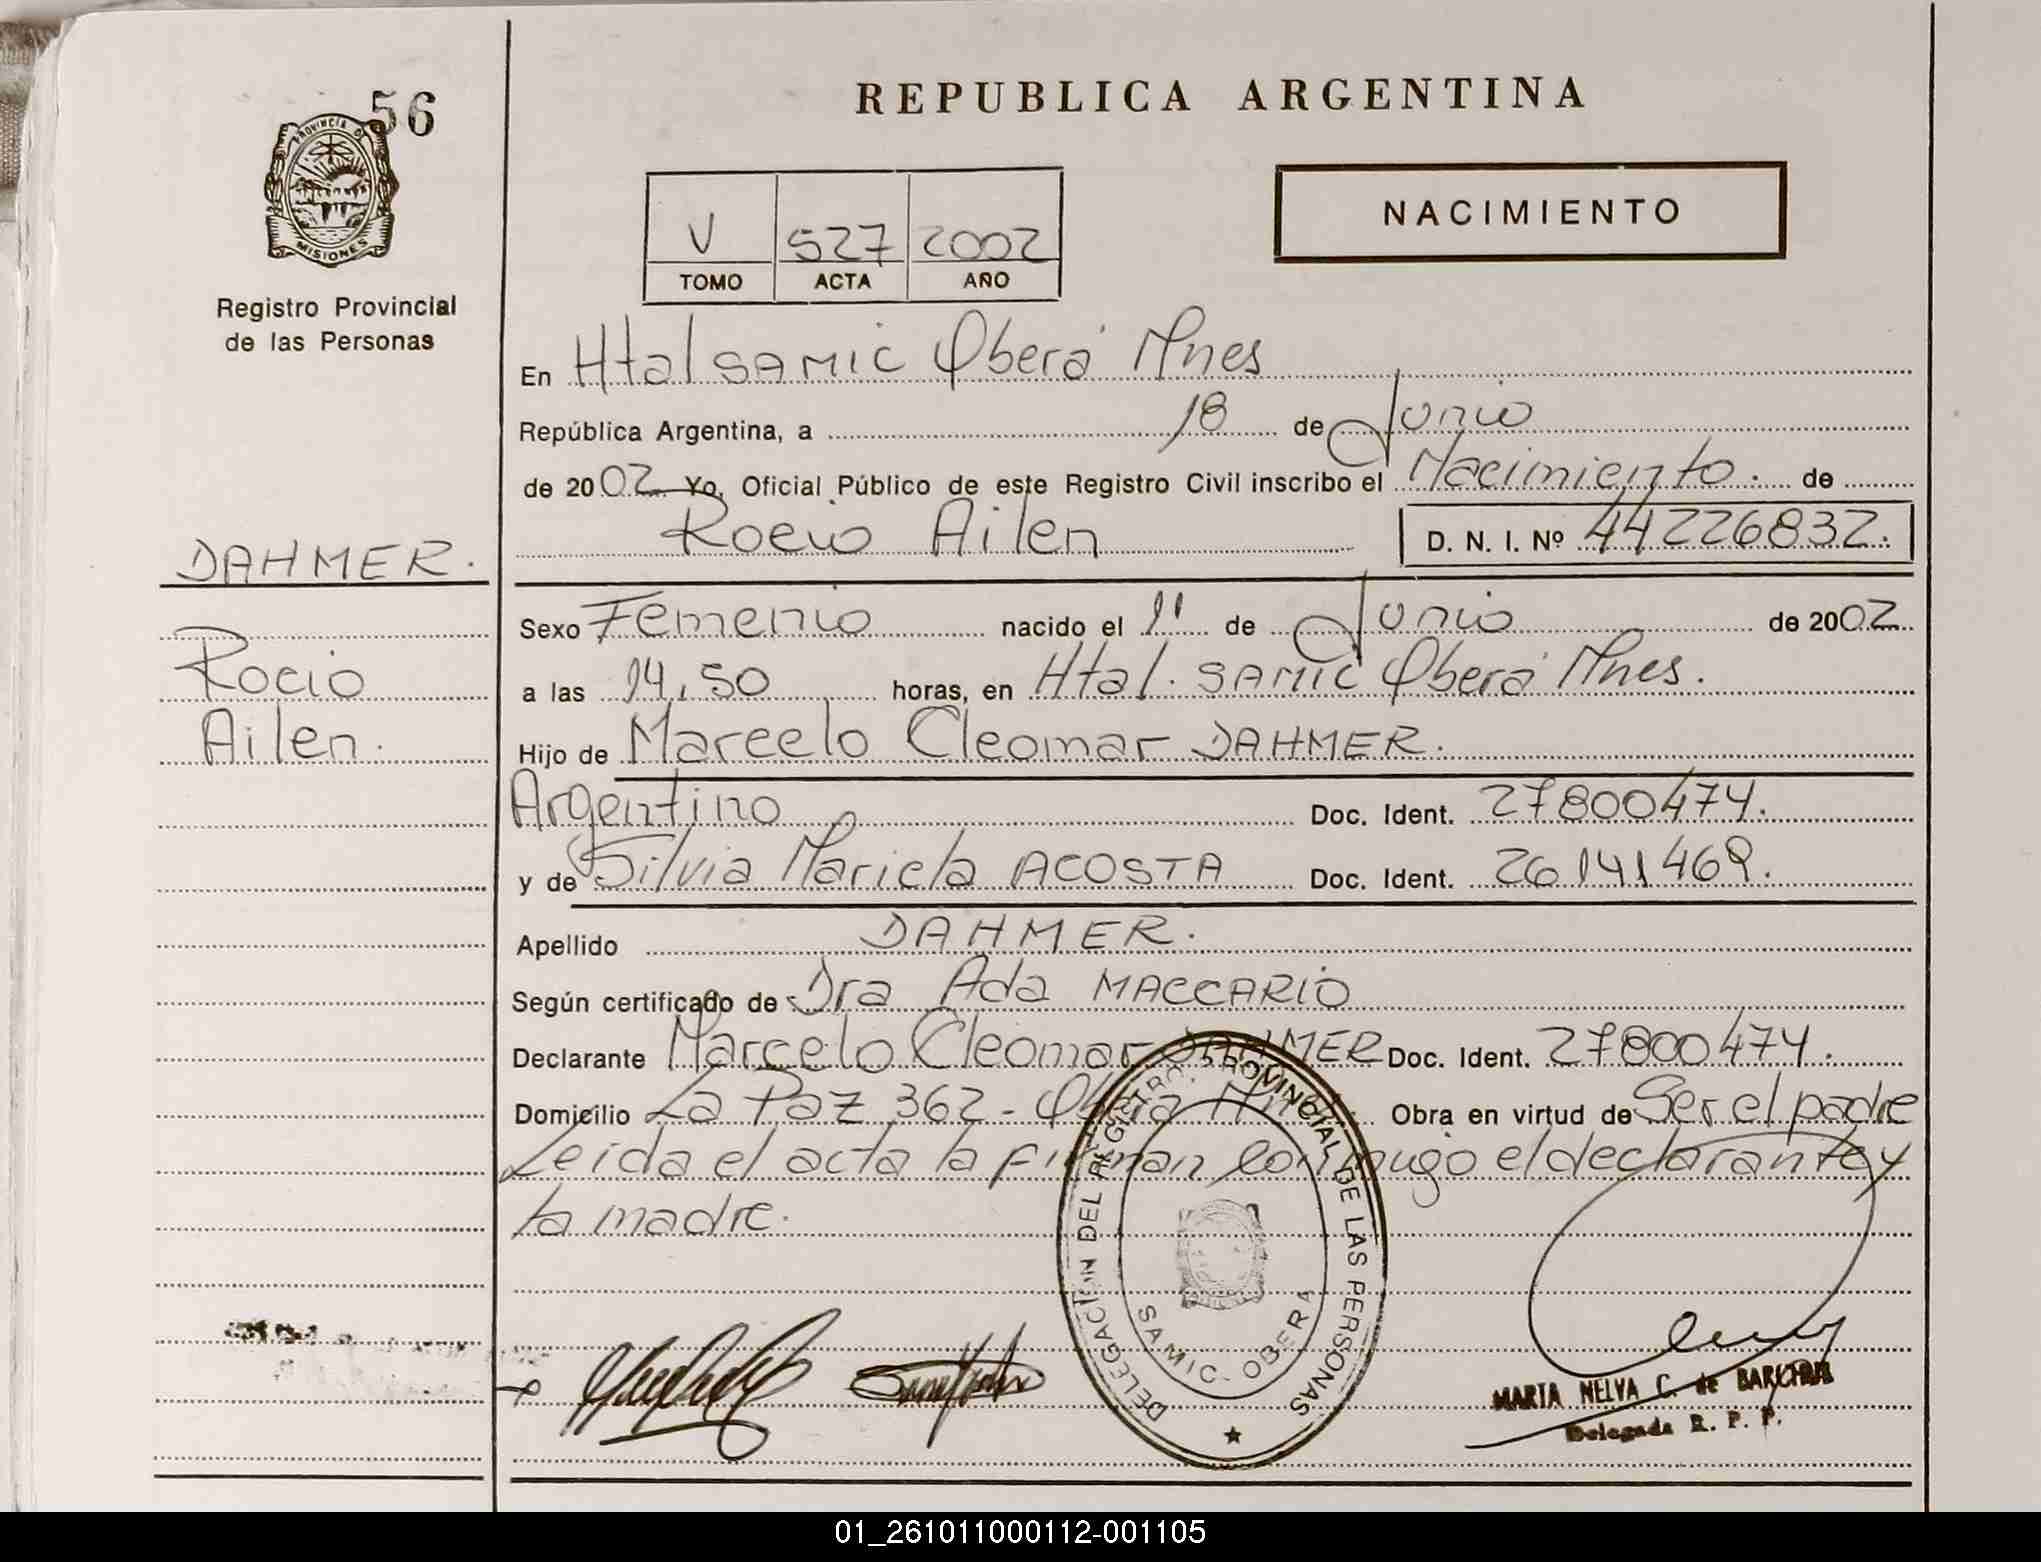 56
PROVINCIA D
MISIONES
Registro Provincial
de las Personas
REPUBLICA ARGENTINA
V 527 2002
TOMO ACTA AÑO
NACIMIENTO
En Htal SAMIC Oberá Mnes
República Argentina, a 18 de Junio
de 2002 Yo, Oficial Público de este Registro Civil inscribo el Nacimiento. de
Rocio Ailen D. N. I. Nº 44226832.
DAHMER.
Rocio
Ailen.
Sexo Femenio nacido el 11 de Junio de 2002
a las 14,50 horas, en Htal. SAMIC Oberá Mnes.
Hijo de Marcelo Cleomar DAHMER.
Argentino Doc. Ident. 27800474.
y de Silvia Mariela ACOSTA Doc. Ident. 26141469.
Apellido DAHMER.
Según certificado de Dra Ada MACCARIO
Declarante Marcelo Cleomar DAHMER Doc. Ident. 27800474.
Domicilio La Paz 362 - Obra en virtud de Ser el padre
Leida el acta la firman conmigo el declarante y
la madre.
DELEGACION DEL REGISTRO PROVINCIAL DE LAS PERSONAS
SAMIC - OBERA
MARIA NELVA C. de
Delegada R. P. P.
01_261011000112-001105